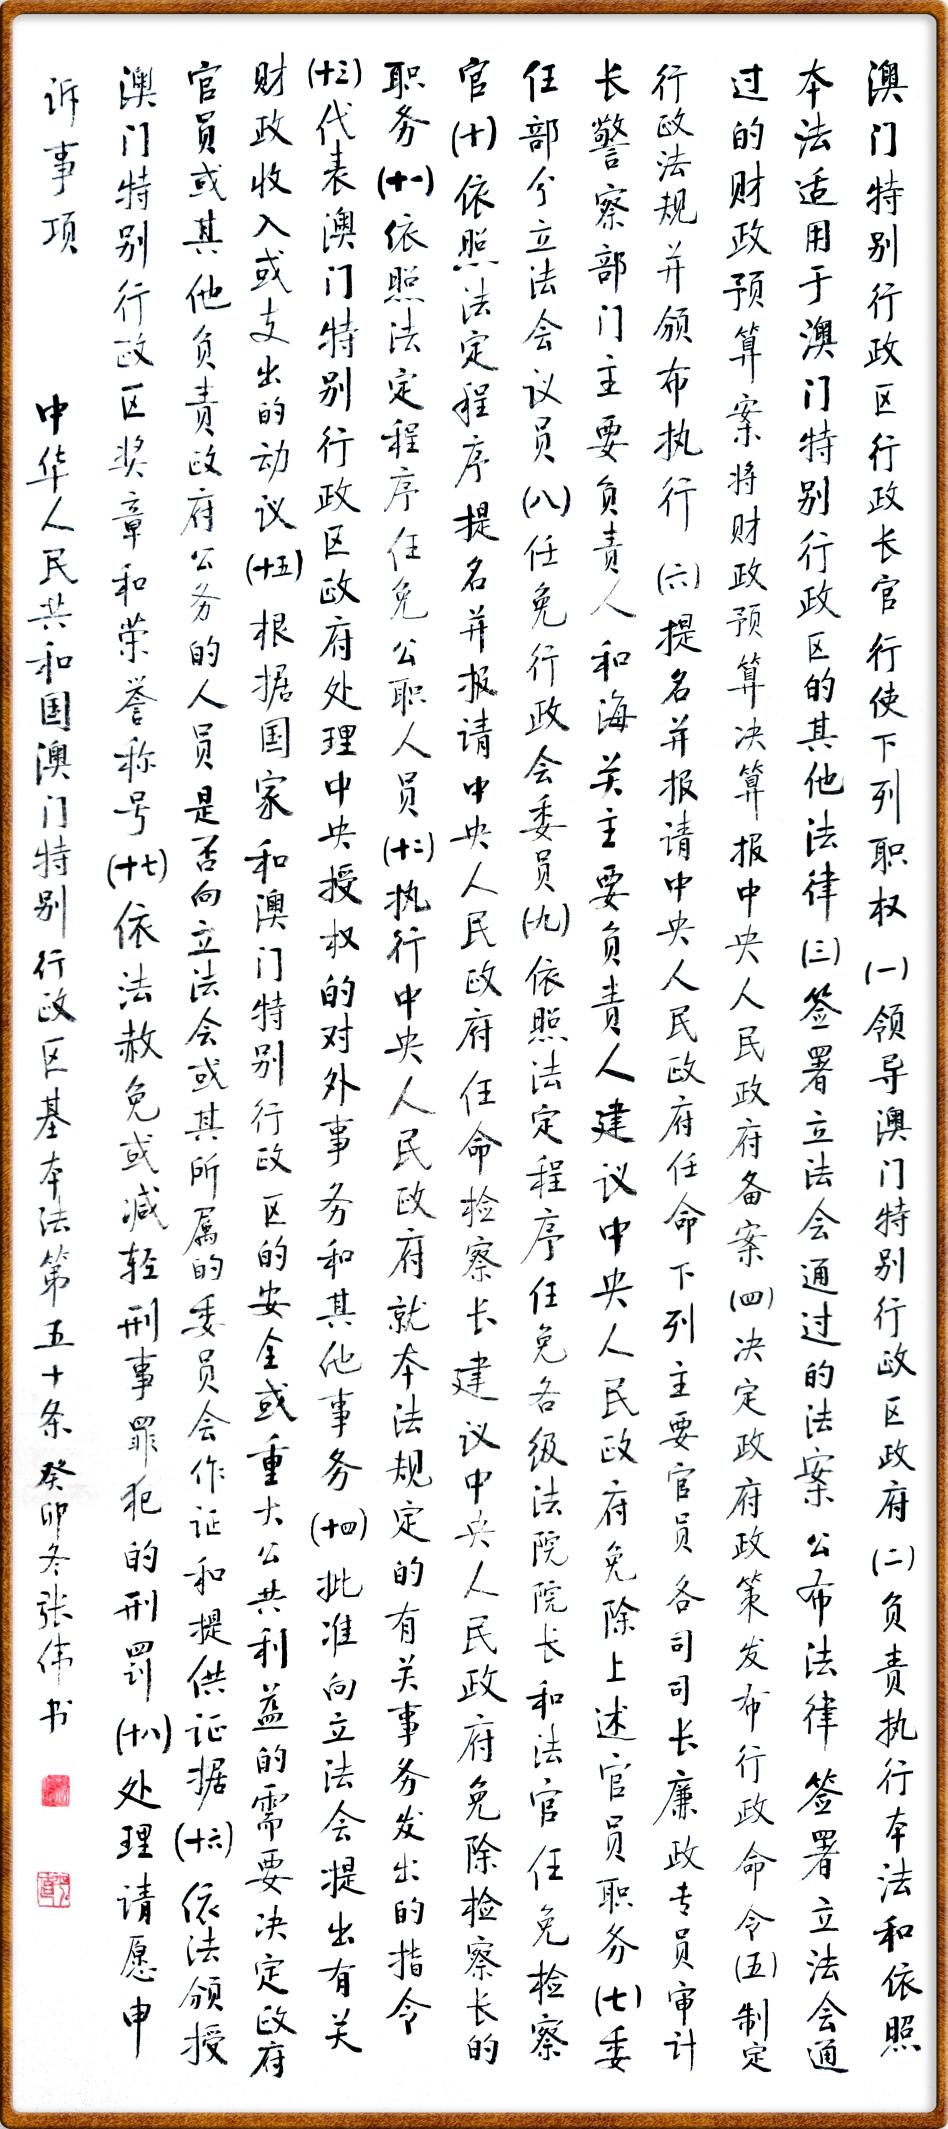 澳门特别行政区行政长官行使下列职权(一)领导澳门特别行政区政府(二)负责执行本法和依照
本法适用于澳门特别行政区的其他法律(三)签署立法会通过的法案公布法律签署立法会通
过的财政预算案将财政预算决算报中央人民政府备案(四)决定政府政策发布行政命令(五)制定
行政法规并颁布执行(六)提名并报请中央人民政府任命下列主要官员各司司长廉政专员审计
长警察部门主要负责人和海关主要负责人建议中央人民政府免除上述官员职务(七)委
任部分立法会议员(八)任免行政会委员(九)依照法定程序任免各级法院院长和法官任免检察
官(十)依照法定程序提名并报请中央人民政府任命检察长建议中央人民政府免除检察长的
职务(十一)依照法定程序任免公职人员(十二)执行中央人民政府就本法规定的有关事务发出的指令
(十三)代表澳门特别行政区政府处理中央授权的对外事务和其他事务(十四)批准向立法会提出有关
财政收入或支出的动议(十五)根据国家和澳门特别行政区的安全或重大公共利益的需要决定政府
官员或其他负责政府公务的人员是否向立法会或其所属的委员会作证和提供证据(十六)依法颁授
澳门特别行政区奖章和荣誉称号(十七)依法赦免或减轻刑事罪犯的刑罚(十八)处理请愿申
诉事项
中华人民共和国澳门特别行政区基本法第五十条癸卯冬张伟书